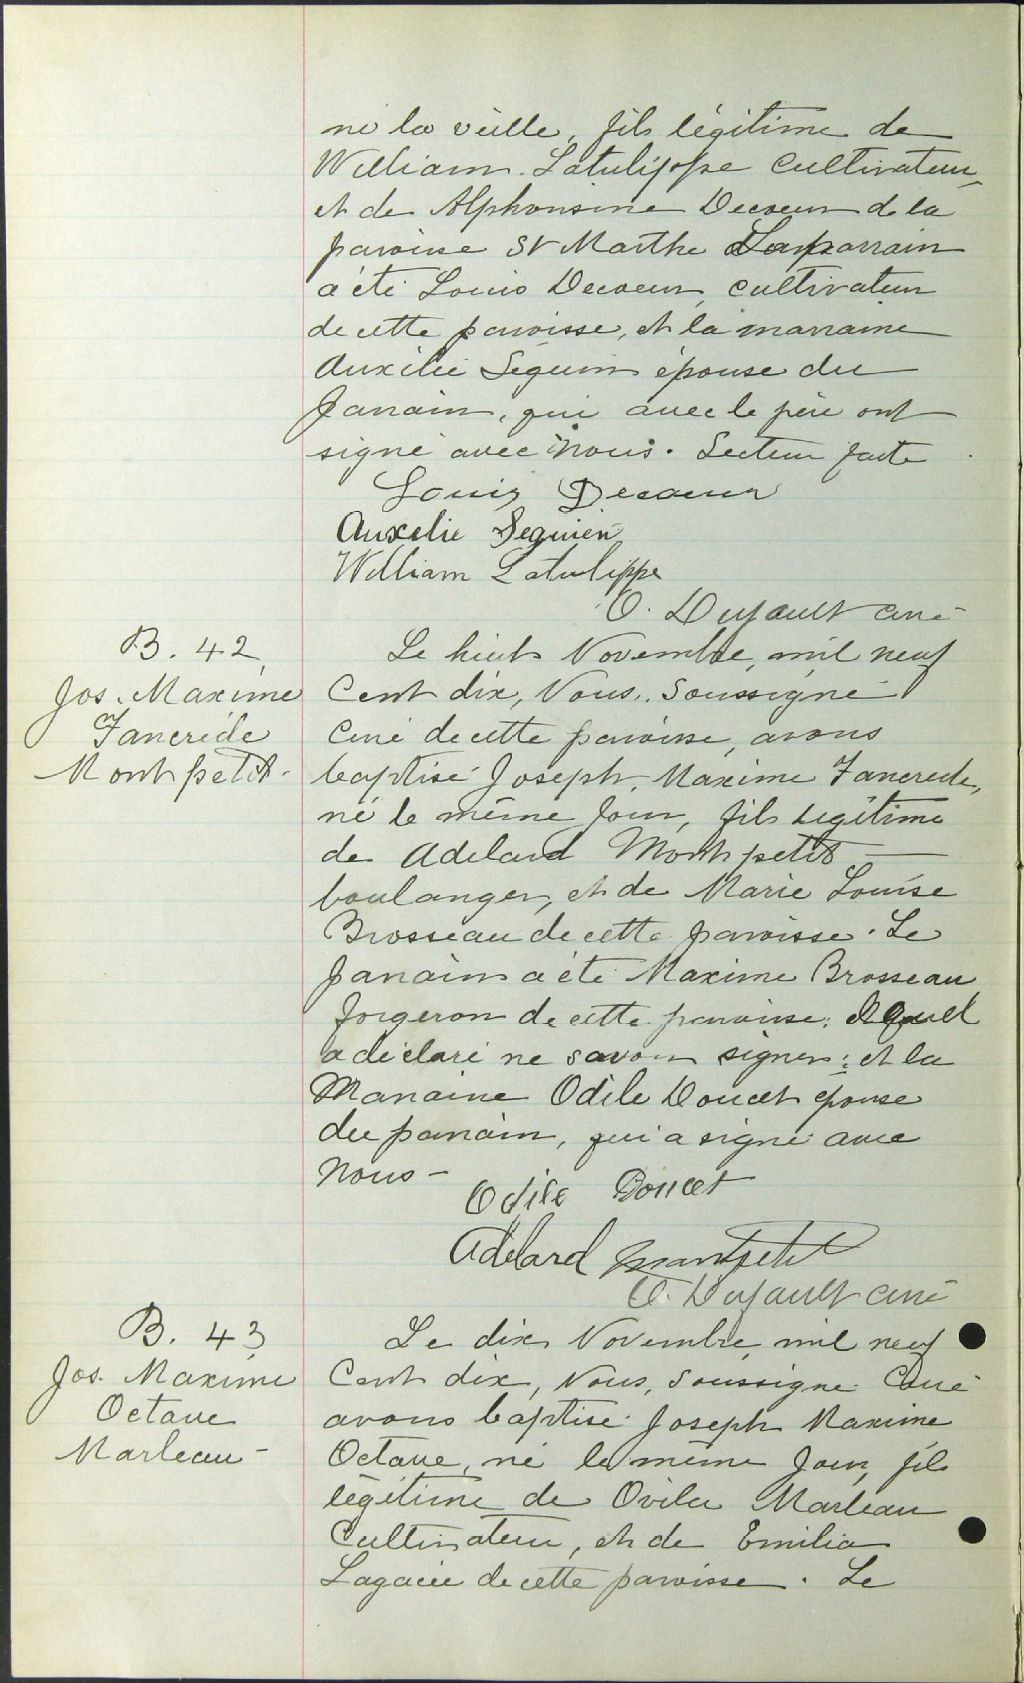 né la veille, fils légitime de
William Latulippe Cultivateur,
et de Alphonsine Decoeur de la
paroisse St Marthe Le parrain
a été Louis Decoeur, cultivateur
de cette paroisse, et la marraine
Auxilie Séguin épouse du
parrain, qui avec le père ont
signé avec nous. Lecture faite
Louis Decoeur
Auxelie Seguien
William Latulippe
O. Dufault curé
B. 42
Jos. Maxime
Tancréde
Montpetit.
Le huit Novembre, mil neuf
Cent dix, Nous, Soussigné
Curé de cette paroisse, avons
baptisé Joseph, Maxime Tancrede,
né le même Jour, fils légitime
de Adelard Montpetit
boulanger, et de Marie Louise
Brosseau de cette paroisse. Le
parrain a été Maxime Brosseau
forgeron de cette paroisse; lequel
a déclaré ne savoir signer; et la
Marraine Odile Doucet épouse
du parrain, qui a signé avec
Nous-
Odile Doucet
Adelard Montpetit
O. Dufault curé
B. 43
Jos. Maxime
Octave
Marleau-
Le dix Novembre, mil neuf
Cent dix, Nous, Soussigné Curé
avons baptisé Joseph Maxime
Octave, né le même Jour, fils
légitime de Ovila Marleau
Cultivateur, et de Emilia
Lagacée de cette paroisse. Le